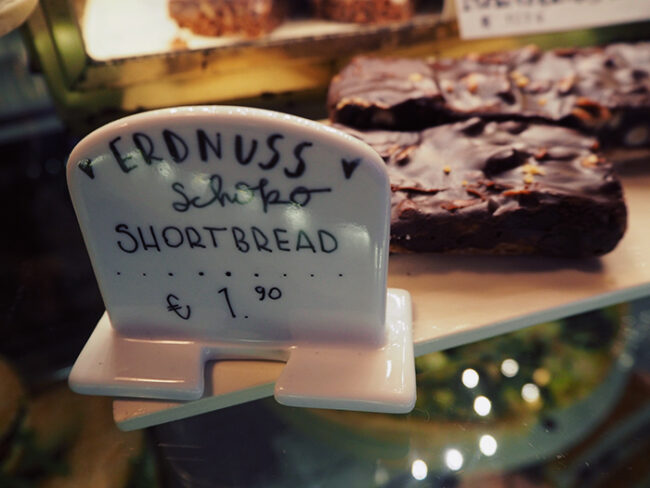 ERDNUSS
schoko
SHORTBREAD
€ 1.90